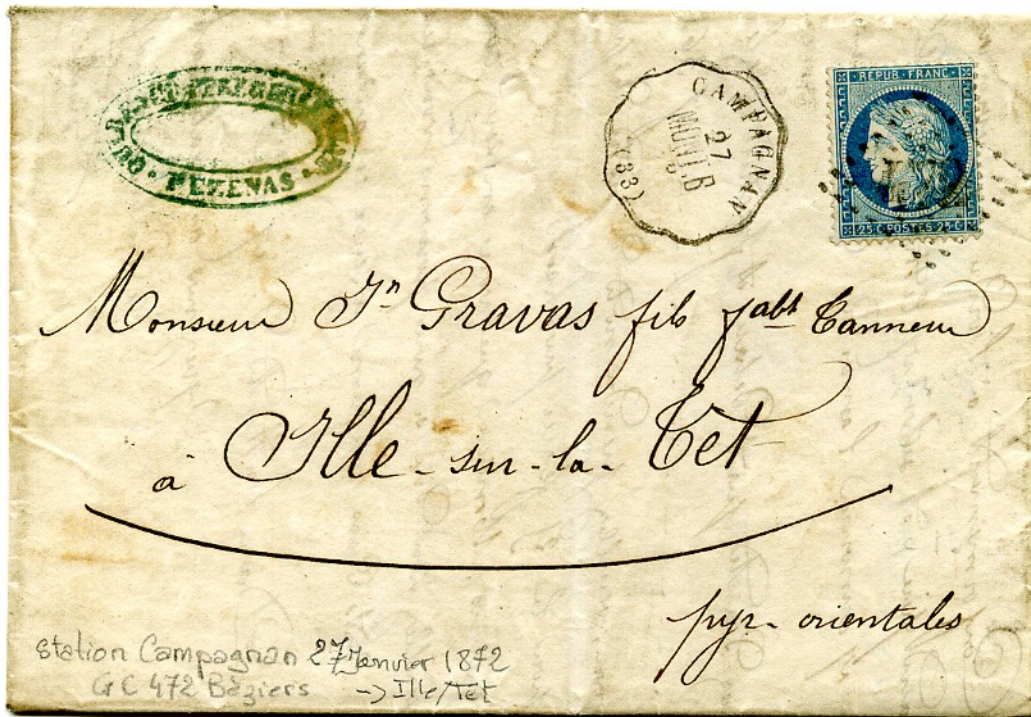 PEZENAS
CAMPAGNAN
27
(33)
REPUB·FRANC·
25 C·POSTES·25 C
Monsieur Jn Gravas fils fabt Tanneur
à Ille-sur-la-Tèt
pyr-orientales
station Campagnan 27 Janvier 1872
GC 472 Béziers -> Ille/Tet